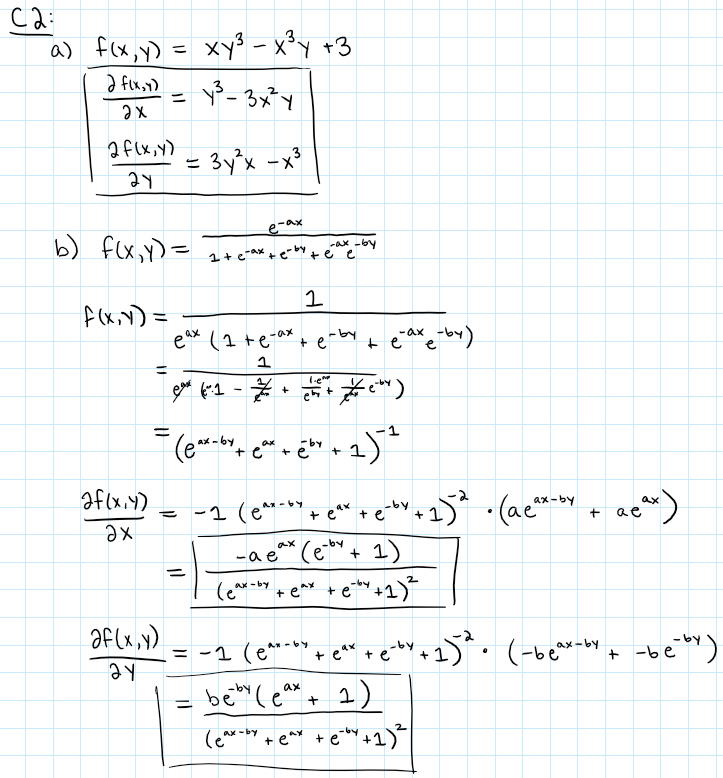 C2:
a) f(x,y) = xy³ - x³y + 3
∂f(x,y)/∂x = y³ - 3x²y
∂f(x,y)/∂y = 3y²x - x³
b) f(x,y) = e^(-ax) / (1 + e^(-ax) + e^(-by) + e^(-ax) e^(-by))
f(x,y) = 1 / (e^(ax) (1 + e^(-ax) + e^(-by) + e^(-ax) e^(-by)))
= (e^(ax-by) + e^(ax) + e^(-by) + 1)^(-1)
∂f(x,y)/∂x = -1 (e^(ax-by) + e^(ax) + e^(-by) + 1)^(-2) · (ae^(ax-by) + ae^(ax))
= -ae^(ax) (e^(-by) + 1) / (e^(ax-by) + e^(ax) + e^(-by) + 1)²
∂f(x,y)/∂y = -1 (e^(ax-by) + e^(ax) + e^(-by) + 1)^(-2) · (-be^(ax-by) + -be^(-by))
= be^(-by) (e^(ax) + 1) / (e^(ax-by) + e^(ax) + e^(-by) + 1)²